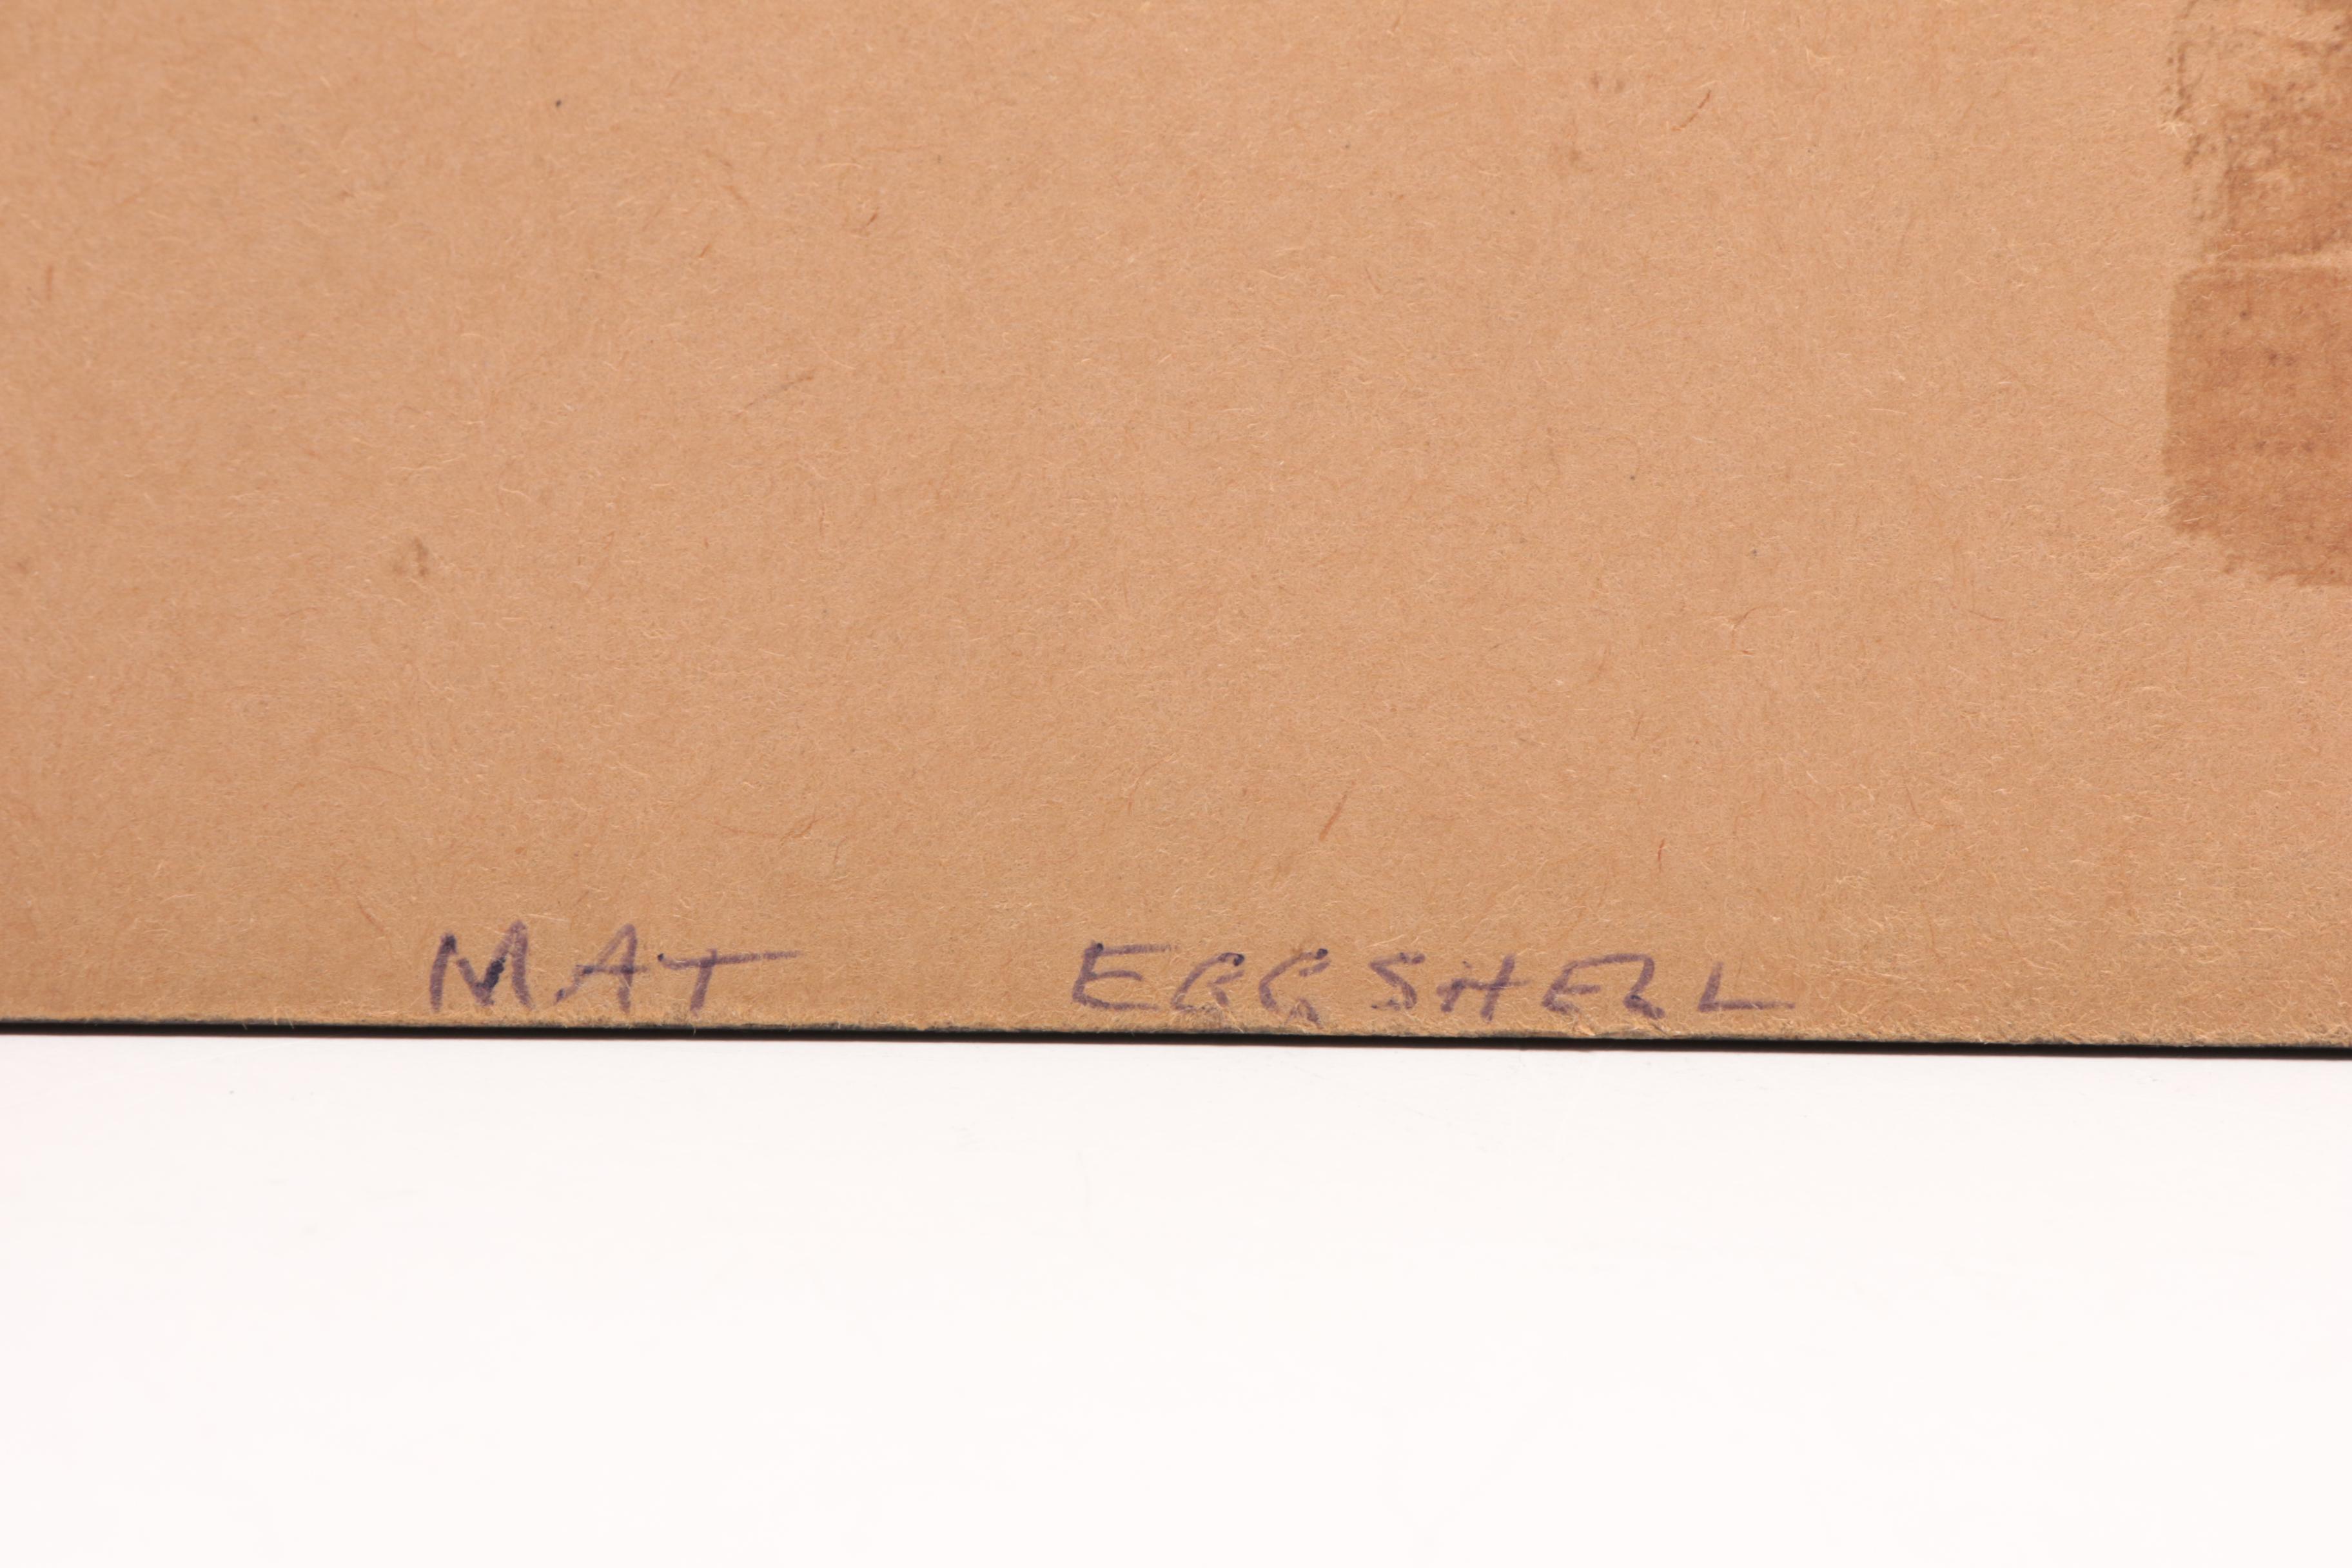 MAT EGGSHELL